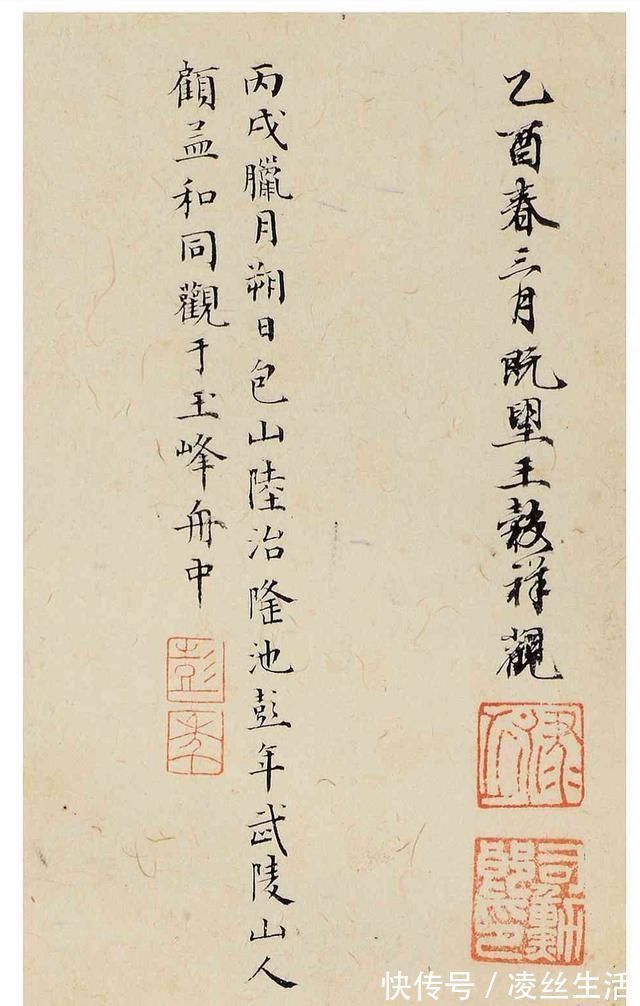 乙酉春三月既朢王穀祥觀
祿之
司勳郎印
丙戌臘月朔日包山陸治隆池彭年武陵山人
顧益和同觀于玉峰舟中
彭年
快传号 / 凌丝生活